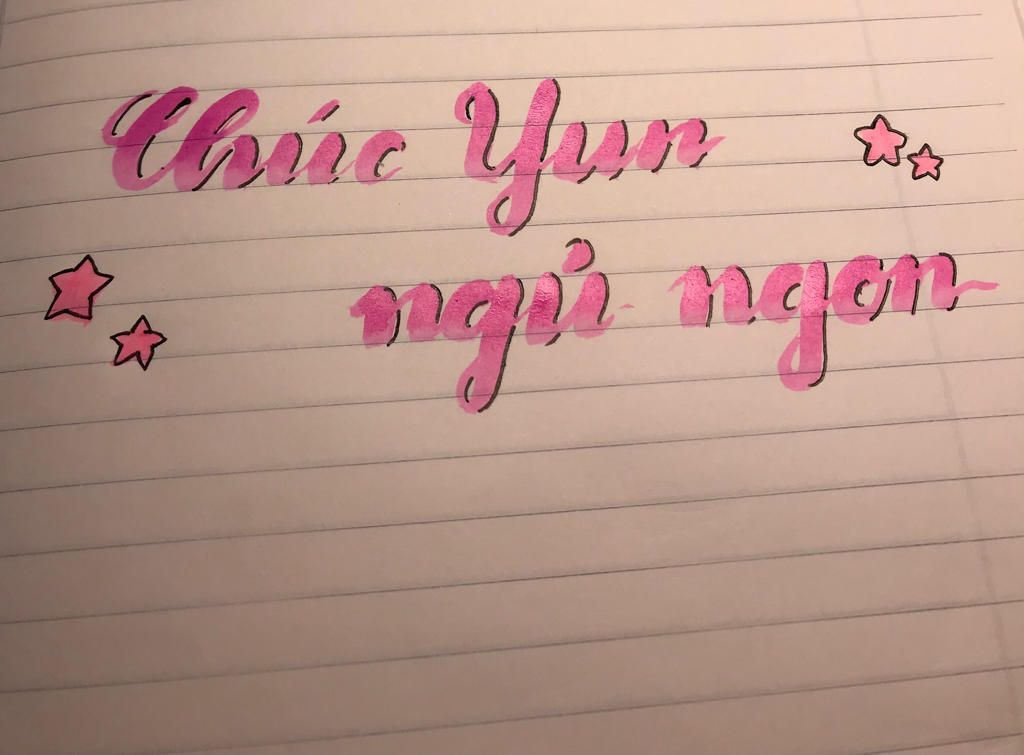 Chúc Yun
ngủ ngon